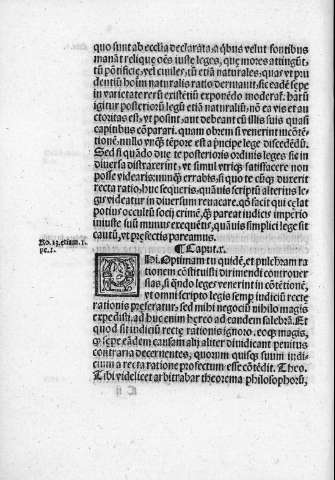 quo sunt ab ecclia declarata, a qbus velut fontibus
manāt relique oēs iuste leges, que mores attingūt,
tū pōtificie, vel ciuiles, tū etiā naturales, quas vt pru
dentiū hoīm naturalis ratio deriuauit, sic eadē sepe
in varietate rerū existētiū exponēdo moderat. harū
igitur posteriorū legū etiā naturaliū, nō ea vis et au
ctoritas est, vt possint, aut debeant cū illis suis quasi
capitibus cōparari. quam obrem si venerint in cōtē-
tionē, nullo vnq̄ tēpore est a prīcipe lege discedēdū.
Sed si quādo due te posterioris ordinis leges sic in
diuersa distraxerint, vt simul vtriqz satisfacere non
posse videaris: nunq̄ errabis, si quo te cūqz duxerit
recta ratio, huc sequeris, quāuis scriptū alterius le-
gis videatur in diuersum reuocare. qđ facit qui celat
potius occultū socij crimē, q̄ pareat iudicis imperio
iniuste suū munus exequētis, quāuis simplici lege sit
cautū, vt prefectis pareamus.
Ro. 13. et tim. 1.
pe. 2.
¶ Caput.x.
Ohi. Optimam tu quidē, et pulchram ra
tionem cōstituisti dirimendi controuer
sias, si qn̄do leges venerint in cōtētionē,
vt omni scripto legis semp iudiciū recte
rationis preferatur. sed mihi negociū nihilo magis
expedisti. ad huc enim hereo ad eandem salebrā. Et
quod sit iudiciū recte rationis ignoro. eoqz magis,
q sepe eādem causam alij aliter diiudicant penitus
contraria decernentes, quorum quisqz suum iudi-
cium a recta ratione profectum esse cōtēdit. Theo.
Tibi videlicet arbitrabar theorema philosophorū,